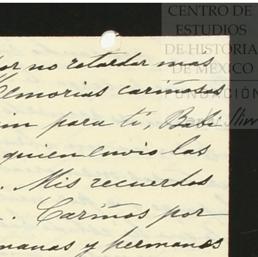 CENTRO DE
ESTUDIOS
DE HISTORIA
DE MÉXICO
por no retardar mas
Memorias cariñosas
para tí, Bebé
quien envio las
. Mis recuerdos
. Cariños por
manas y hermanos